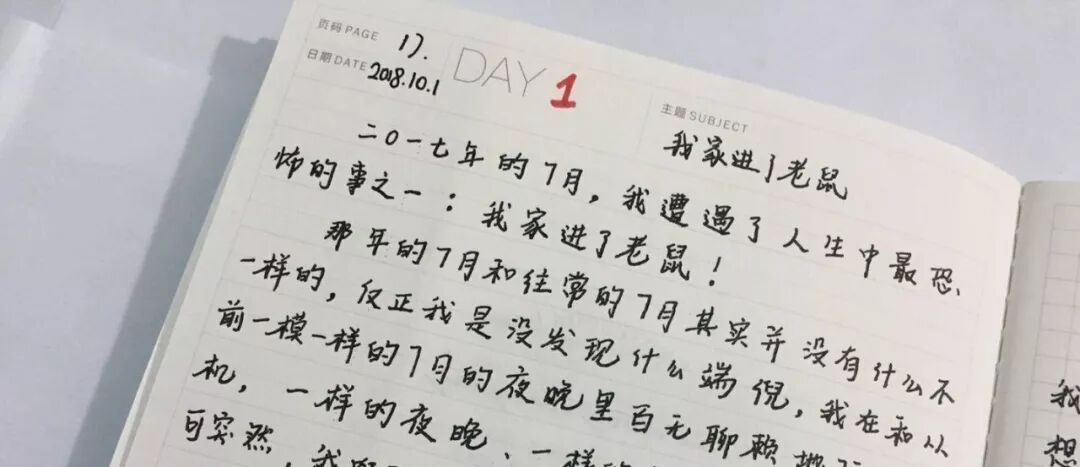 页码 PAGE 17.
日期 DATE 2018.10.1
DAY 1
主题 SUBJECT
我家进了老鼠
二〇一七年的7月，我遭遇了人生中最恐
怖的事之一：我家进了老鼠！
那年的7月和往常的7月其实并没有什么不
一样的，仅正我是没发现什么端倪，我在和以
前一模一样的7月的夜晚里百无聊赖地
机，一样的夜晚、一样的
可突然，我
我
想